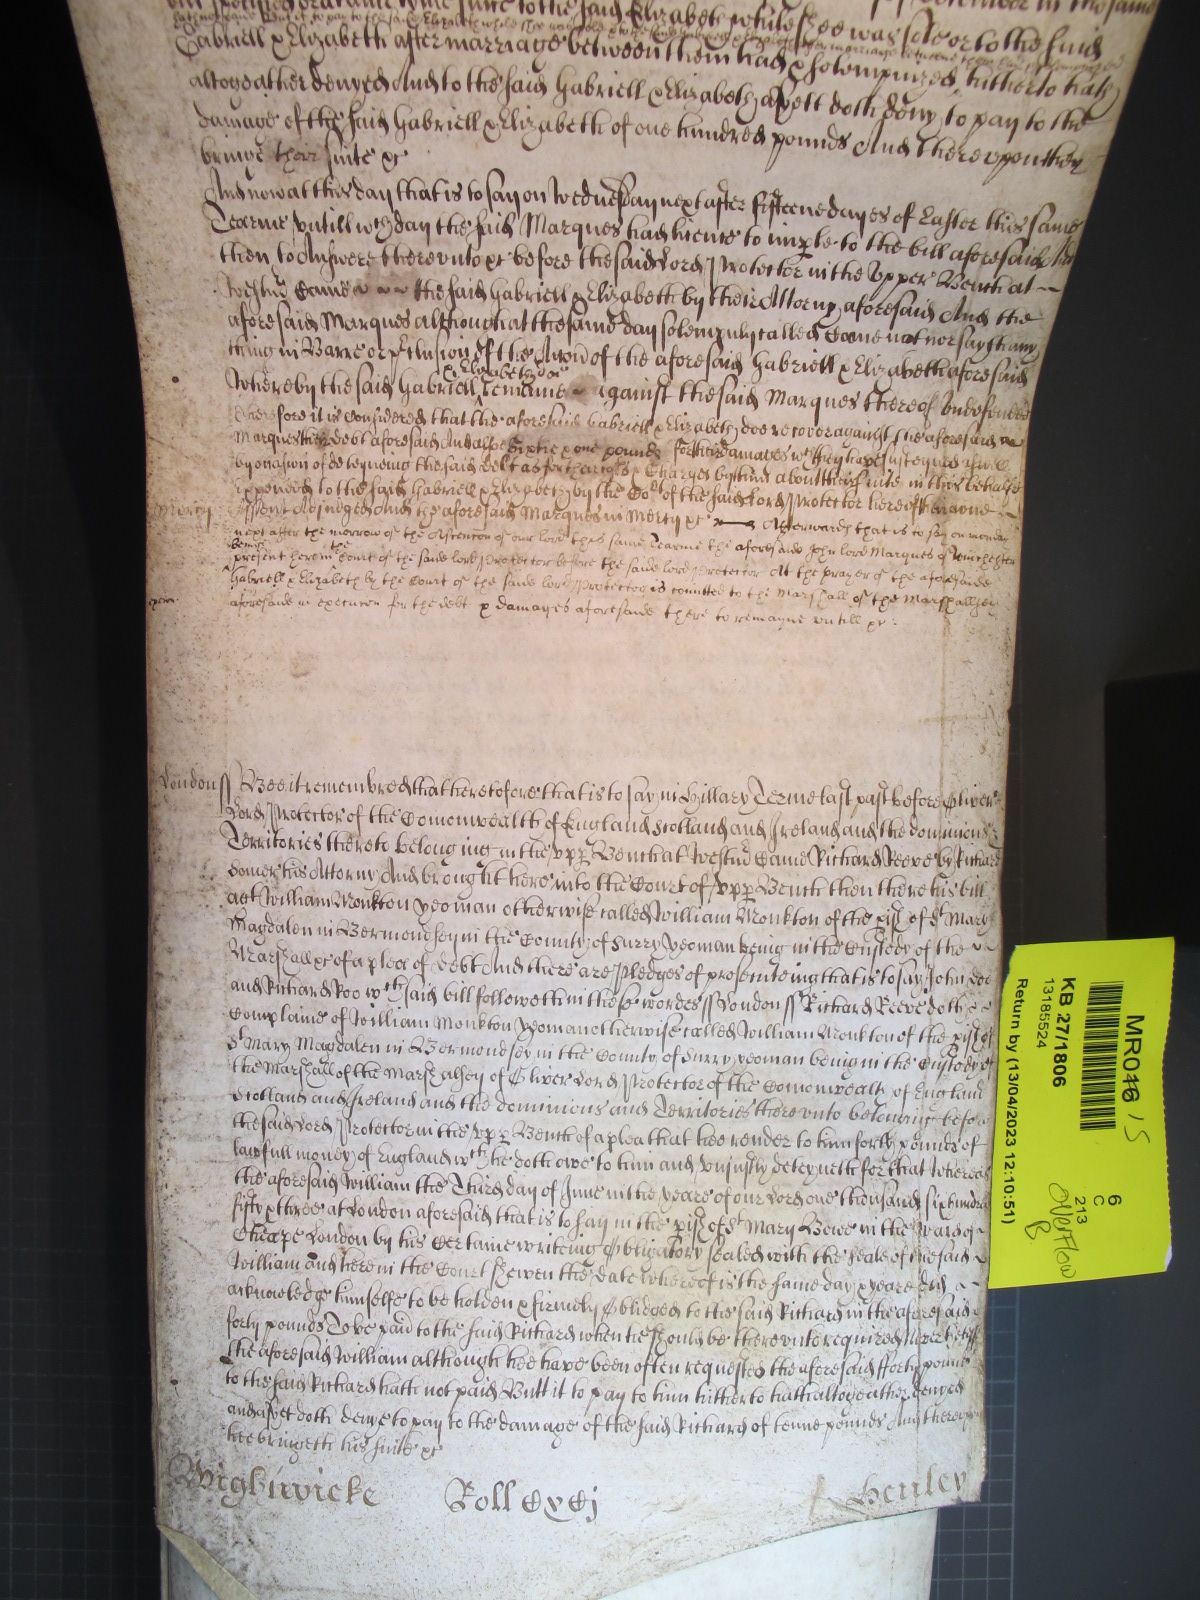 sute to the said Elizabeth while shee was sole or to the said
Gabriell & Elizabeth after marriage betweene them had & solempnized hitherto hath
altogeather denyed And to the said Gabriell & Elizabeth as yett doth deny to pay to the
damage of the said Gabriell & Elizabeth of one hundred pounds And thereuppon they
bringe their suite &c
And now at this day that is to say on Wednesday next after fifteene dayes of Easter this same
Tearme untill wch day the said Marques had licence to imparle to the bill aforesaid and
then to Answere thereunto &c before the said Lord Protector in the Upper Bench at
Westmr Came the said Gabriell & Elizabeth by their Attorny aforesaid And the
aforesaid Marques although at the same day solempnly called Came not nor sayth any
thing in Barre or preclusion of the Accon of the aforesaid Gabriell & Elizabeth aforesaid
& Elizabeth doe
Whereby the said Gabriell remaine against the said Marques thereof Undefended
Therefore it is considered that the aforesaid Gabriell & Elizabeth doe recover against the aforesaid
Marques their debt aforesaid And alsoe Sixtie & one pounds for their damages wch they have susteyned aswell
by occasion of deteyneing the said debt as for their costs & Charges by them about their suite in this behalfe
expended to the said Gabriell & Elizabeth by the Cort of the said Lord Protector here of their owne
Mercy
assent Adjudged And the aforesaid Marques in Mercy &c Afterwards that is to say on monday
next after the morrow of the Ascencon of our lord this same Tearme the aforesaide John lord Marques of Winchester
being
the
present here in Court of the saide lord Protector before the saide lord Protector At the prayer of the aforesaide
Gabriell & Elizabeth by the Court of the saide lord Protector is comitted to the Marshall of the Marshallsey
aforesaide in execucon for the debt & damages aforesaide there to remayne untill &c
London ss Bee it remembred that heretofore that is to say in Hillary Terme last past before Oliver
Lord Protector of the Comonwealth of England Scotland and Ireland and the dominions &
Territories thereto belonging in the upp Bench at Westmr Came Richard Reeve by Richard
Somer his Attorny And brought here into the Court of upp Bench then there his bill
agt William Monkton yeoman otherwise called William Monkton of the pish of St Mary
Magdalen in Bermondsey in the County of Surry yeoman being in the Custody of the
Marshall &c of a plea of debt And there are Pledges of prosecuteing that is to say John Doe
and Richard Roo wch said bill followeth in these wordes ss London ss Richard Reeve doth
Complaine of William Monkton yeoman otherwise called William Monkton of the pish of
St Mary Magdalen in Bermondsey in the County of Surry yeoman being in the Custody of
the Marshall of the Marshalsey of Oliver Lord Protector of the Comonwealth of England
Scotland and Ireland and the dominions and Territories thereunto belonging before
the said Lord Protector in the upp Bench of a plea that hee render to him forty pounds of
lawfull money of England wch he doth owe to him and unjustly deteyneth for that Whereas
the aforesaid William the Third day of June in the yeare of our Lord one thousand six hundred
fifty & three at London aforesaid that is to say in the pish of St Mary Bowe in the Ward of
Cheape London by his Certaine writeing Obligatory sealed with the seale of the said
William and here in the Court shewen the date whereof is the same day & yeare did
acknowledge himselfe to be holden & firmely Obliged to the said Richard in the aforesaid
forty pounds To be paid to the said Richard when he should be thereunto required Neverthelesse
the aforesaid William although hee have been often requested the aforesaid fforty pounds
to the said Richard hath not paid Butt it to pay to him hitherto hath altogeather denyed
and as yet doth denye to pay to the damage of the said Richard of tenne pounds And thereupon
hee bringeth his suite &c
Wightwicke Roll CxCj Henley
MR046 / S
KB 27/1806
13185524
Return by (13/04/2023 12:10:51)
6
C
213
overflow
B